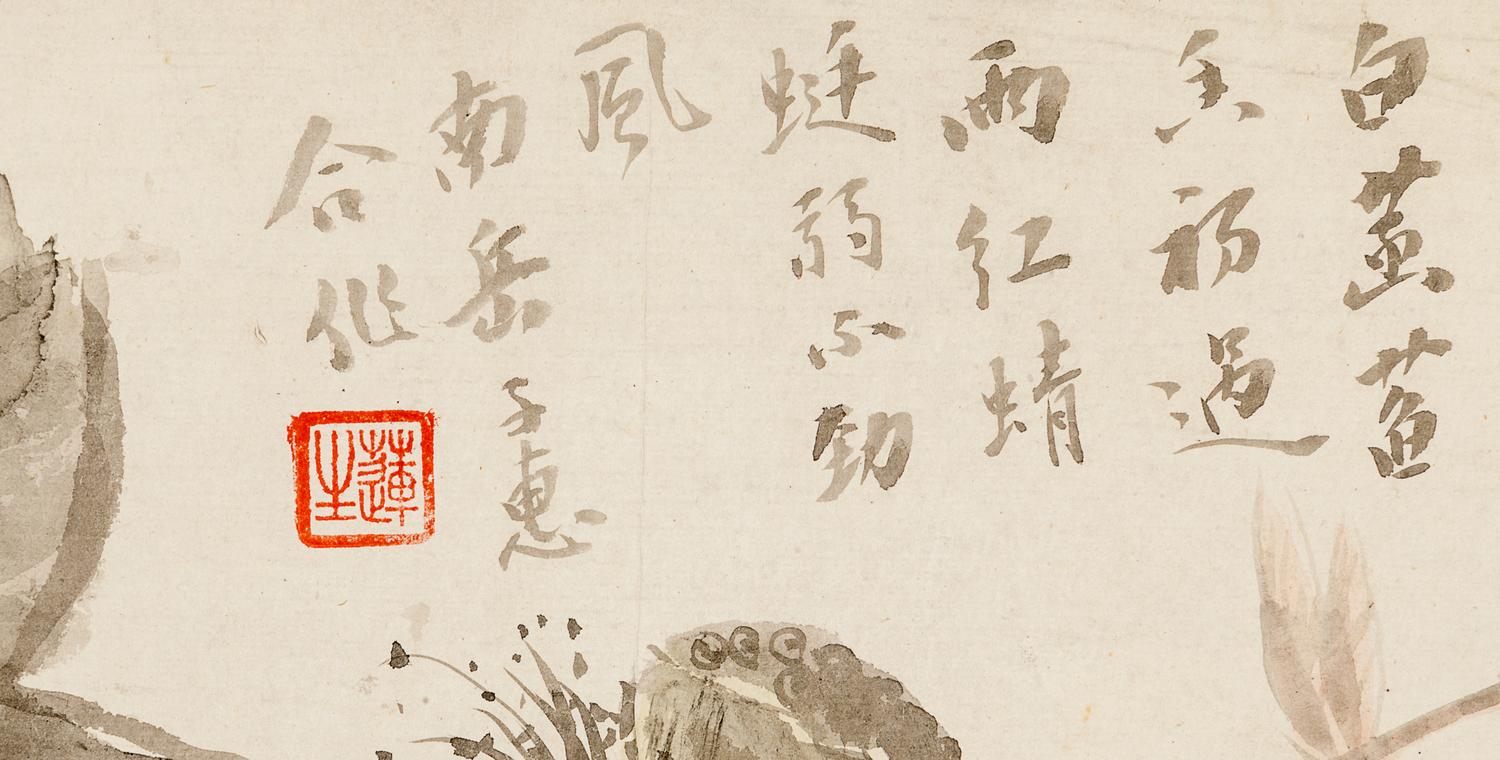 白菡萏
香初過
雨紅蜻
蜓弱不勁
風
南岳子惠
合作
蓮生